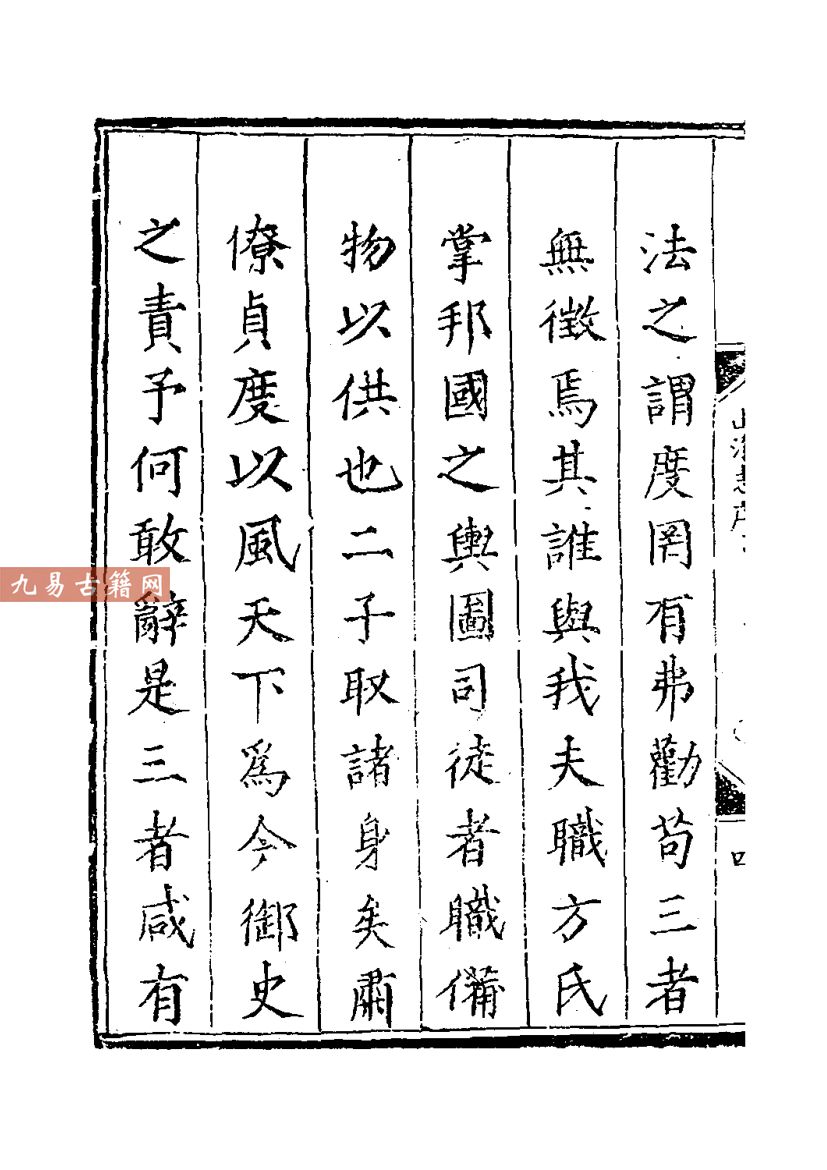 法之謂度罔有弗勸苟三者
無徵焉其誰與我夫職方氏
掌邦國之輿圖司徒者職備
物以供也二子取諸身矣肅
僚貞度以風天下為今御史
之責予何敢辭是三者咸有
九易古籍网